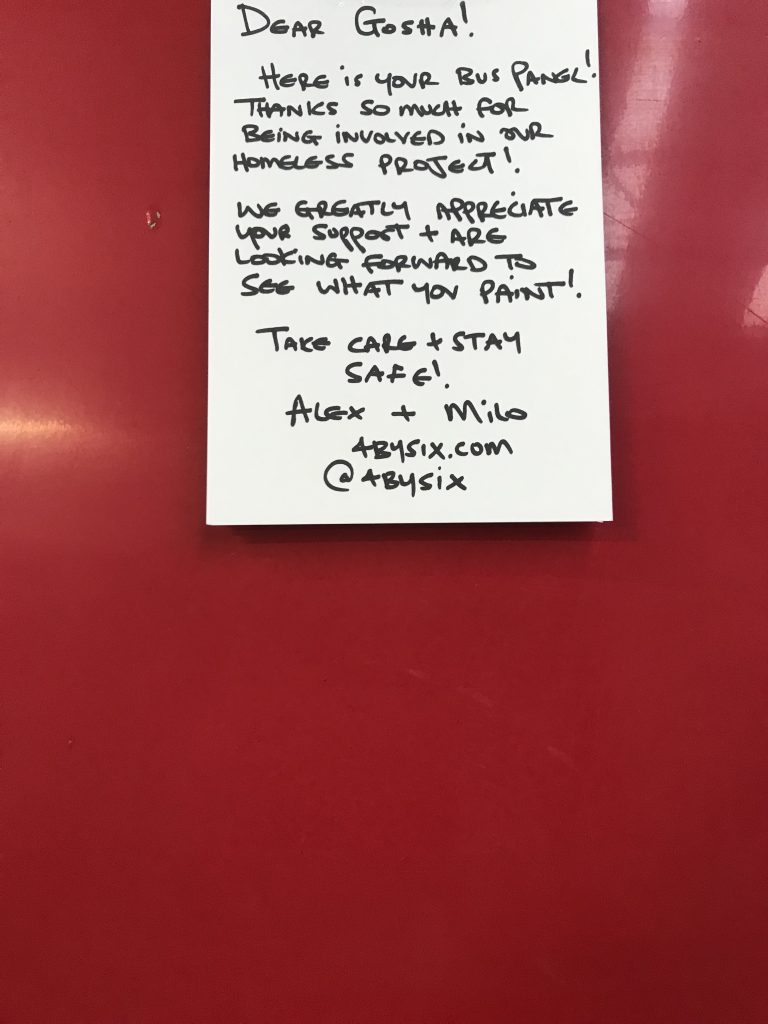 DEAR GOSHA!
HERE iS YOUR BUS PANEL!
THANKS SO MUCH FOR
BEING INVOLVED IN OUR
HOMELESS PROJECT!
WE GREATLY APPRECIATE
YOUR SUPPORT + ARE
LOOKING FORWARD TO
SEE WHAT YOU PAINT!
TAKE CARE + STAY
SAFE!
ALEX + MILO
4BYSIX.COM
@4BYSIX